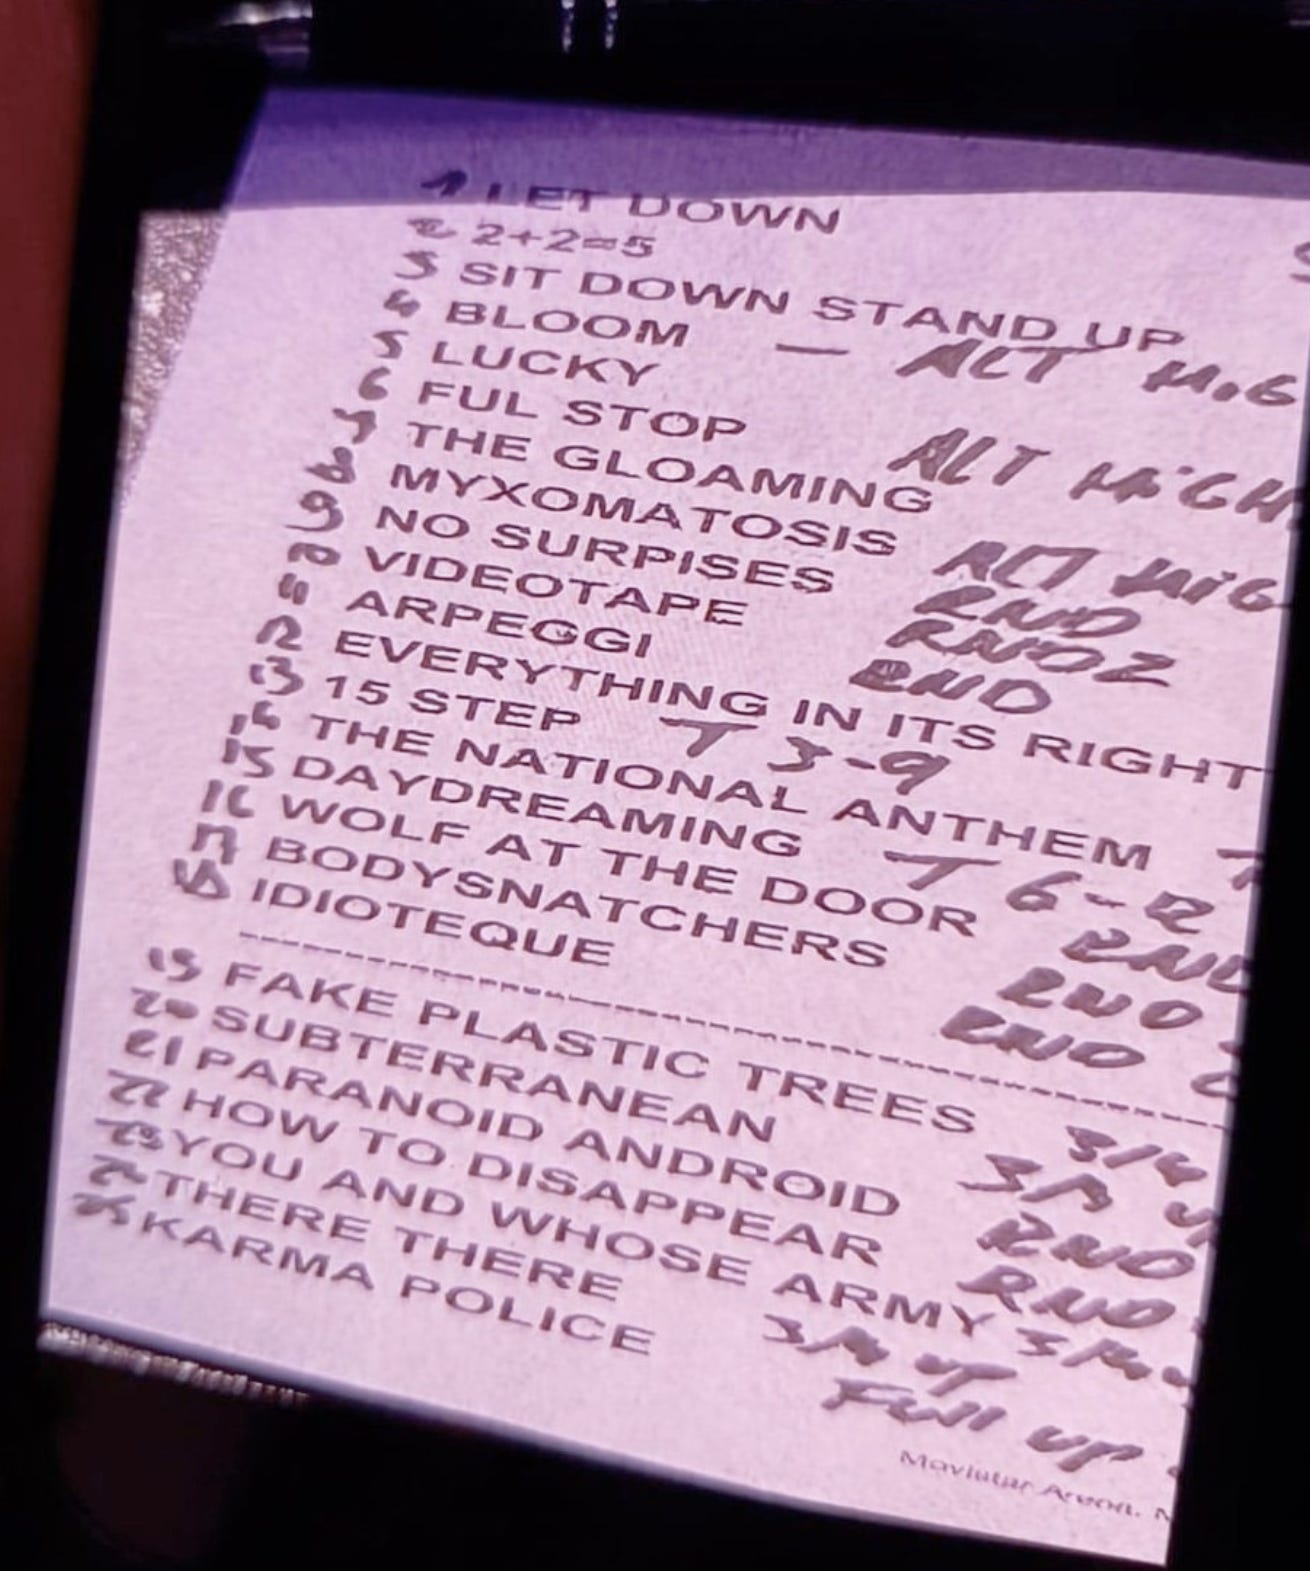 1 LET DOWN
2 2+2=5
3 SIT DOWN STAND UP
4 BLOOM — ALT
5 LUCKY
6 FUL STOP ALT HiGH
7 THE GLOAMING
8 MYXOMATOSIS ALT
9 NO SURPISES RND
10 VIDEOTAPE RND2
11 ARPEGGI RND
12 EVERYTHING IN ITS RIGHT
13 15 STEP T 3-9
14 THE NATIONAL ANTHEM T
15 DAYDREAMING T 6-12
16 WOLF AT THE DOOR RND
17 BODYSNATCHERS RND
18 IDIOTEQUE RND
19 FAKE PLASTIC TREES 3/4
20 SUBTERRANEAN
21 PARANOID ANDROID RND
22 HOW TO DISAPPEAR RND
23 YOU AND WHOSE ARMY
24 THERE THERE UP
25 KARMA POLICE FULL UP
Movistar Arena,